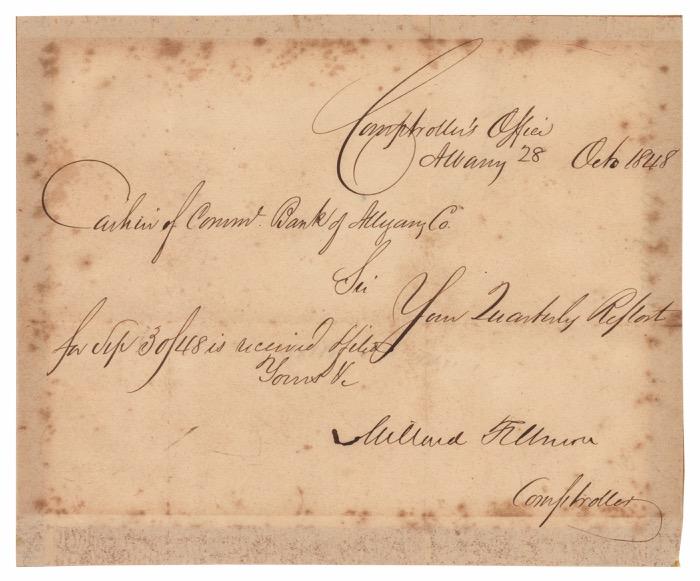 Comptroller's Office
Albany 28 Octo 1848
Cashier of Comml. Bank of Allegany Co.
Sir
Your Quarterly Report
for Sep 30/48 is received & filed
Yours &c
Millard Fillmore
Comptroller